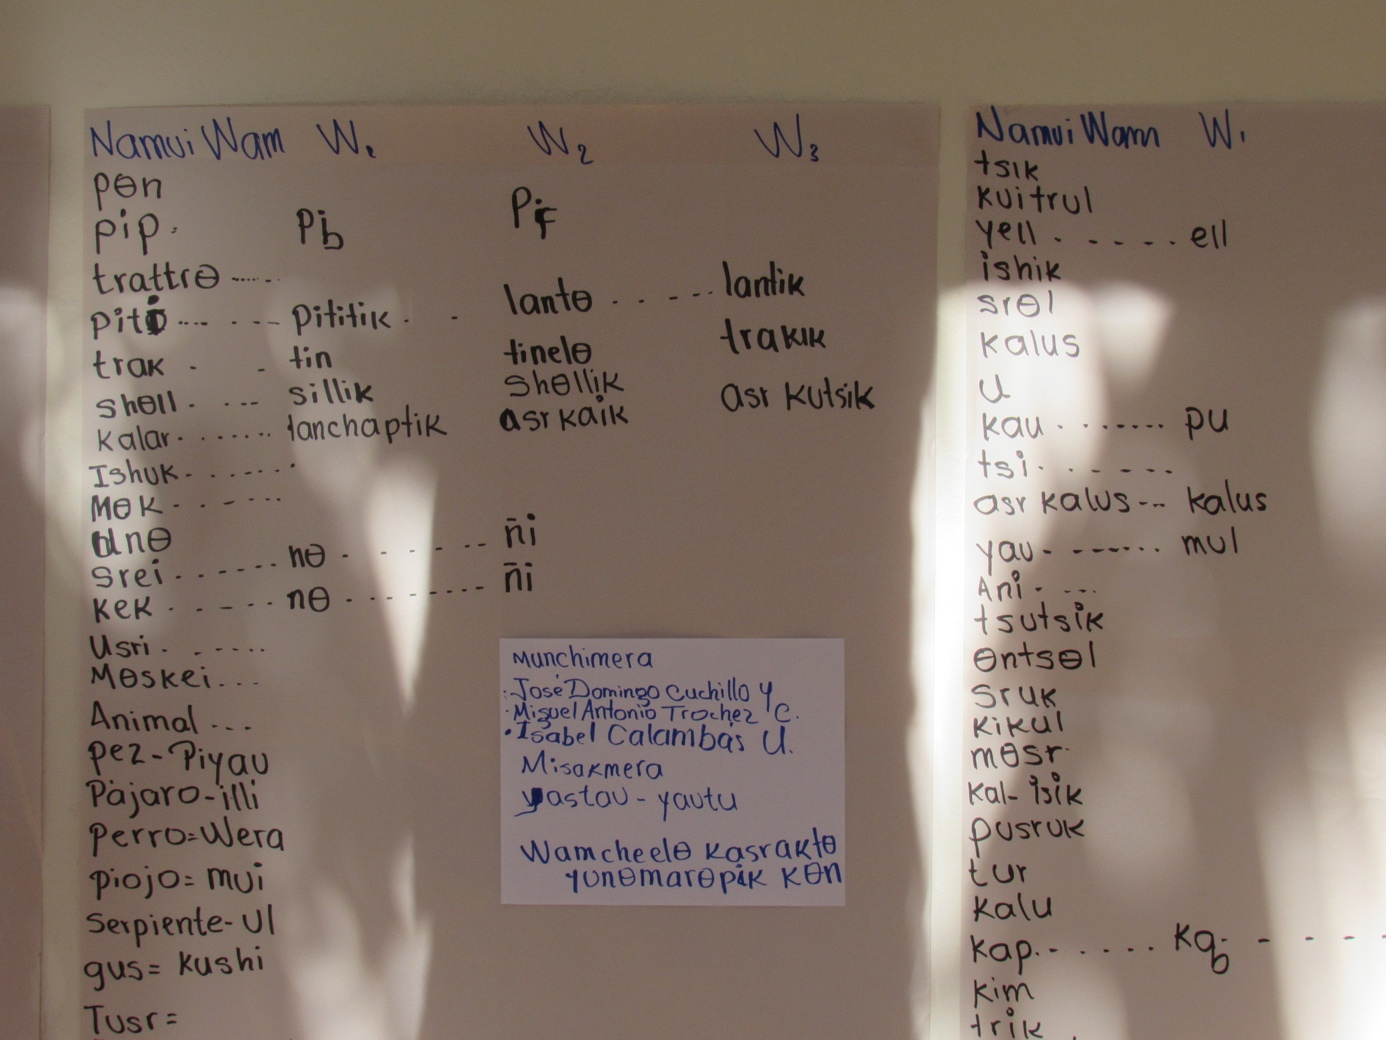 Namui Wam W1 W2 W3
pɵn
pip. Pib Pif
trattrɵ ......
piti ... . - - pititik . . lantɵ . . . - - - lantik
trak . . tin tinelɵ trakik
shɵll . . - - sillik shɵllik
kalar . . . . . . . tanchaptik asr kaik asr kutsik
Ishuk . . . . . . .
Mɵk . . - . . .
unɵ
srei . . . . . . nɵ . . . . - - - ñi
kek . . . . . . nɵ . . . . . . . . ñi
Usri . . . . . . .
Mɵskei . . .
Animal ...
pez - Piyau
Pájaro - illi
perro = Wera
piojo = mui
Serpiente - Ul
gus = kushi
Tusr =
Munchimera
· José Domingo Cuchillo Y
· Miguel Antonio Trochez C.
· Isabel Calambás U.
Misakmera
yastau - yautu
Wamcheelɵ kasraktɵ
yunɵmarɵpik kɵn
Namui Wam W1
tsik
kuitrul
yell . - - - - . ell
ishik
srɵl
kalus
U
kau . . . . . . . pu
tsi . . . - - -
asr kalus - - - kalus
yau - - - - - - . . mul
Ani . - . . .
tsutsik
ɵntsɵl
sruk
kikul
mɵsr
kal - isik
pusruk
tur
kalu
kap . - . . . . . - - - -
kim
trik